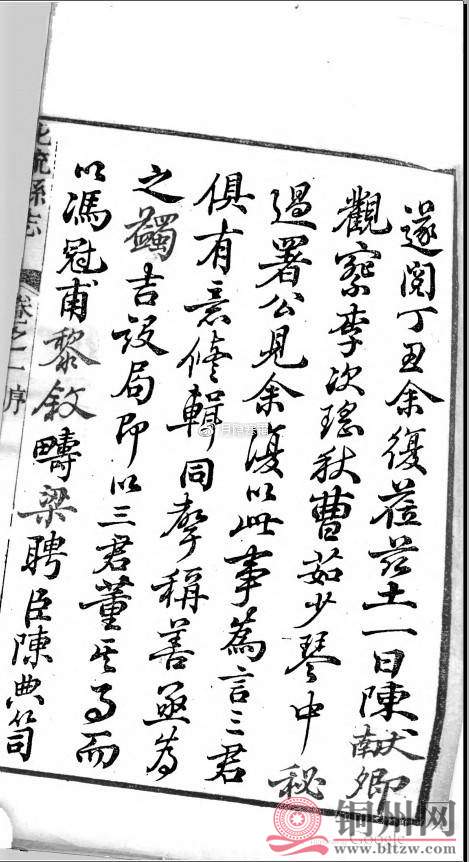 遂閣丁丑余復蒞茲土一日陳獻卿
觀察李次瑤秋曹茹少琴中秘
過署公見余復以此事為言三君
俱有意修輯同聲稱善亟為
之蠲吉設局即以三君董其事而
以馮冠甫黎敘疇梁聘臣陳典笥
北流縣志
卷之一序
铜州网
www.bltzw.com